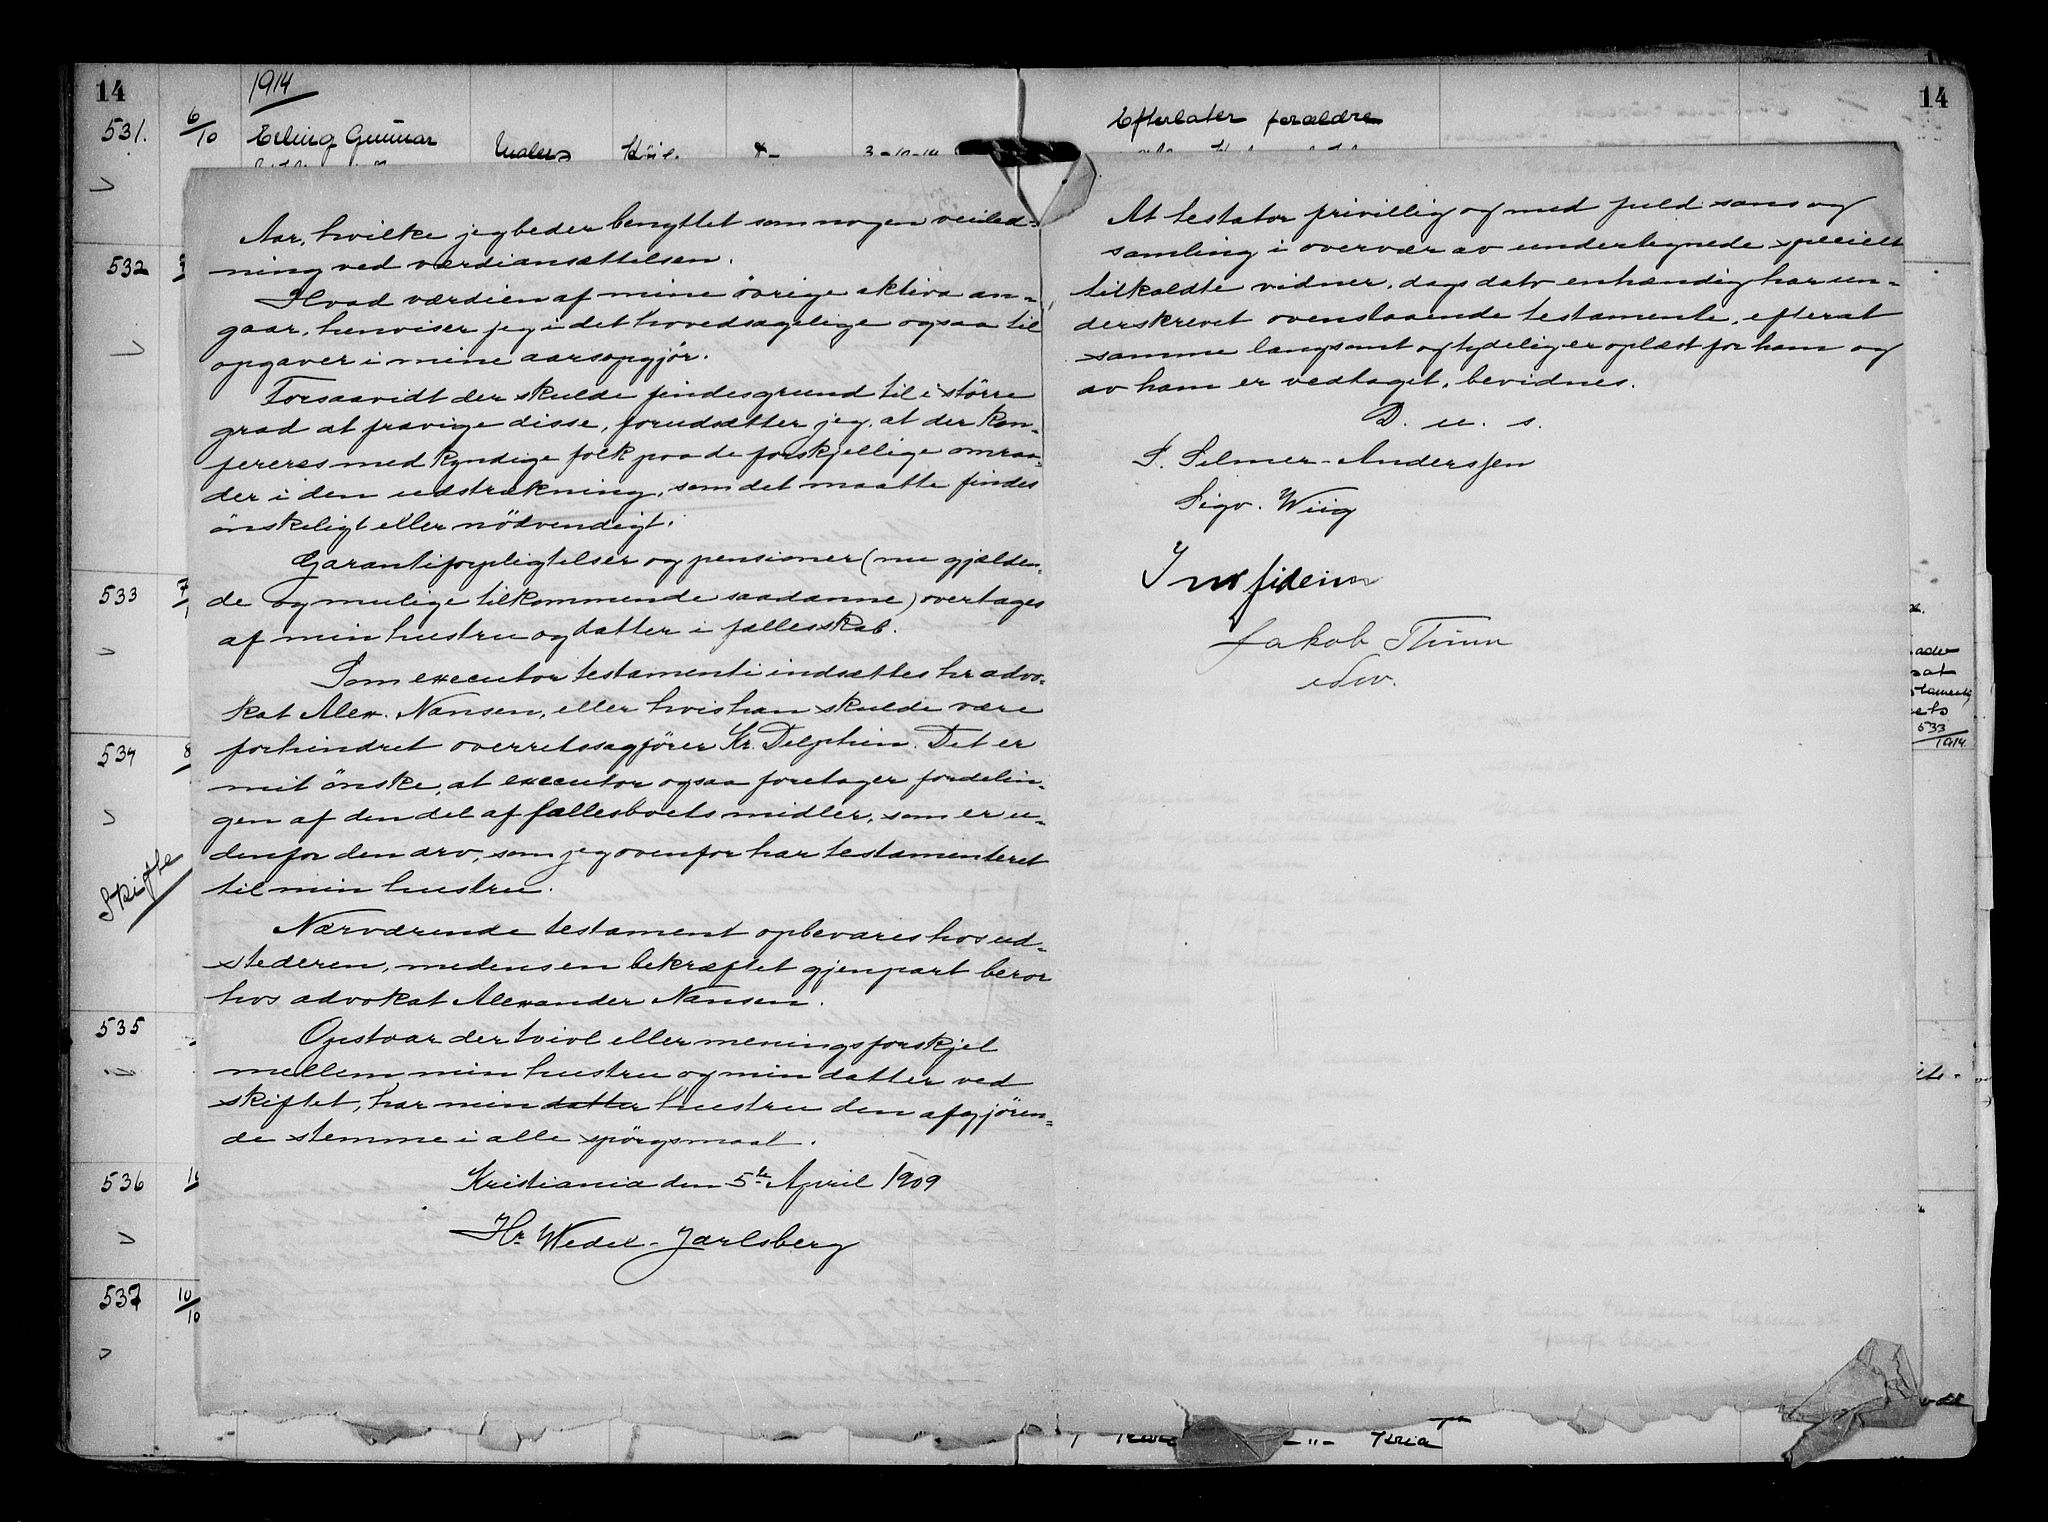 14
1914
531.
6/10
Erling Gunnar
3-10-14
Efterlater forældre
14
532
533
534
Skifte
535
536
537
10/10
Aar, hvilke jeg beder benyttet som nogen veiled-
ning ved værdiansættelsen.
Hvad værdien af mine övrige aktiva an-
gaar, henviser jeg i det hovedsagelige ogsaa til
opgaver i mine aarsopgjör.
Forsaavidt der skulde findes grund til i större
grad at fravige disse, forudsætter jeg, at der kon-
fereres med kyndige folk paa de forskjellige omraa-
der i den udstrækning, som det maatte findes
önskeligt eller nödvendigt.
Garantiforpligtelser og pensioner (nu gjælden-
de og mulige tilkommende saadanne) overtages
af min hustru og datter i fællesskab.
Som executor testamenti indsættes hr advo-
kat Alex. Nansen, eller hvis han skulde være
forhindret overretssagfører Kr. Delphin. Det er
mit önske, at executor ogsaa foretager fordelin-
gen af den del af fællesboets midler, som er u-
denfor den arv, som jeg ovenfor har testamenteret
til min hustru.
Nærværende testament opbevares hos ud-
stederen, medens en bekræftet gjenpart beror
hos advokat Alexander Nansen.
Opstaar der tvivl eller meningsforskjel
mellem min hustru og min datter ved
skiftet, har min datter hustru den afgjören-
de stemme i alle spörgsmaal.
Kristiania den 5te April 1909
Hr. Wedel-Jarlsberg
At testator frivillig og med fuld sans og
samling i overvær av undertegnede specielt
tilkaldte vidner, dags dato enhændig har un-
derskrevet ovenstaaende testamente, efterat
samme langsomt og tydelig er oplæst for ham og
av ham er vedtaget, bevidnes.
D. u. s.
S. Selmer-Anderssen
Sigv. Wiig
In fidem
Jakob
adv.
533
1914
Kria